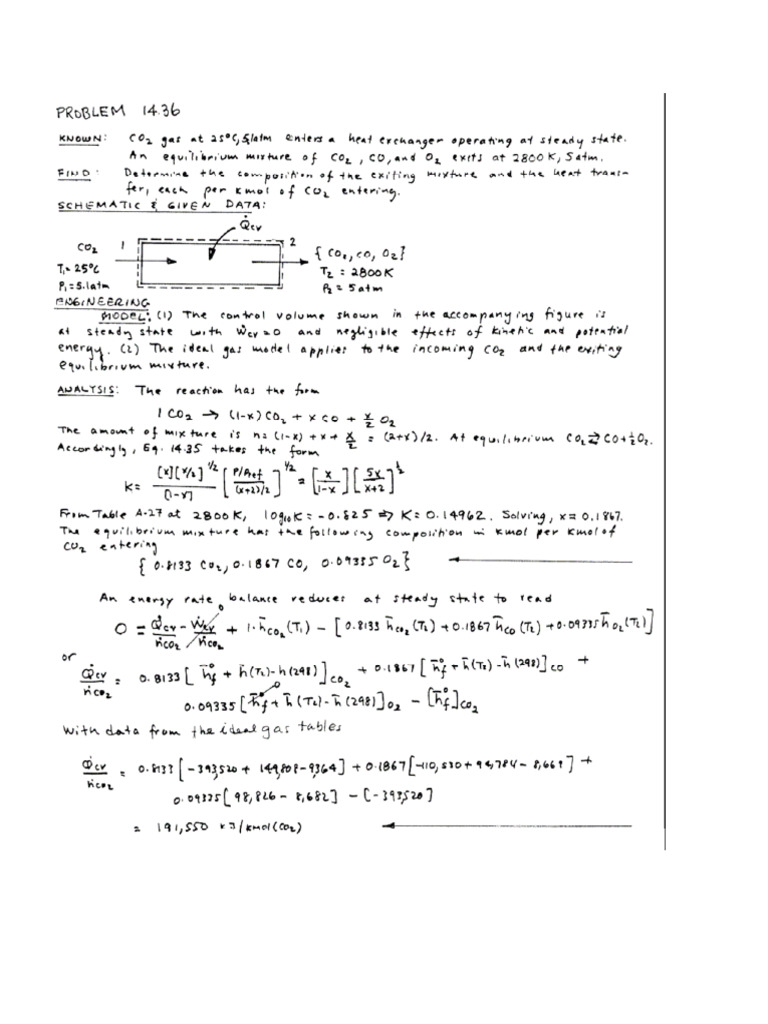 PROBLEM 14.36
KNOWN: CO2 gas at 25°C, 5.1atm enters a heat exchanger operating at steady state.
An equilibrium mixture of CO2, CO, and O2 exits at 2800K, 5atm.
FIND: Determine the composition of the exiting mixture and the heat trans-
fer, each per kmol of CO2 entering.
SCHEMATIC & GIVEN DATA:
Q̇cv
CO2 1 2 { CO2, CO, O2}
T1=25°C T2 = 2800K
P1=5.1atm P2 = 5atm
ENGINEERING
MODEL: (1) The control volume shown in the accompanying figure is
at steady state with Ẇcv=0 and negligible effects of kinetic and potential
energy. (2) The ideal gas model applies to the incoming CO2 and the exiting
equilibrium mixture.
ANALYSIS: The reaction has the form
1 CO2 → (1-x)CO2 + x CO + x/2 O2
The amount of mixture is n = (1-x) + x + x/2 = (2+x)/2. At equilibrium CO2 ⇄ CO+½O2.
Accordingly, Eq. 14.35 takes the form
K = [x][x/2]^1/2 / [1-x] [ P/Pref / (x+2)/2 ]^1/2 = [ x / 1-x ] [ 5x / x+2 ]^1/2
From Table A-27 at 2800K, log10K = -0.825 ⇒ K= 0.14962. Solving, x = 0.1867.
The equilibrium mixture has the following composition in kmol per kmol of
CO2 entering
{ 0.8133 CO2, 0.1867 CO, 0.09335 O2}
An energy rate balance reduces at steady state to read
0 = Q̇cv/ṅCO2 - Ẇcv/ṅCO2 0 + 1·h̄CO2(T1) - [0.8133 h̄CO2(T2) + 0.1867 h̄CO(T2) + 0.09335 h̄O2(T2)]
or
Q̇cv/ṅCO2 = 0.8133[ h̄°f + h̄(T2)-h(298)]CO2 + 0.1867 [ h̄°f + h̄(T2)-h̄(298)]CO +
0.09335[h̄°f 0 + h̄(T2)-h̄(298)]O2 - [h̄°f]CO2
With data from the ideal gas tables
Q̇cv/ṅCO2 = 0.8133 [-393,520 + 149,808-9364] + 0.1867[-110,530+94,784-8,669] +
0.09335[98,826 - 8,682] - [-393,520]
= 191,550 kJ/kmol(CO2)